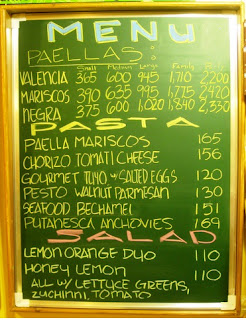 MENU
PAELLAS:
Small Medium Large Family
VALENCIA 365 600 945 1,710 2200
MARISCOS 390 635 995 1,775 2420
NEGRA 375 600 1,020 1,840 2,330
PASTA
PAELLA MARISCOS 165
CHORIZO TOMATI CHEESE 156
GOURMET TUYO w/ SALTED EGGS 120
PESTO WALNUT PARMESAN 130
SEAFOOD BECHAMEL 151
PUTANESCA ANCHOVIES 169
SALAD
LEMON ORANGE DUO 110
HONEY LEMON 110
ALL W/ LETTUCE GREENS,
ZUCHINNI, TOMATO